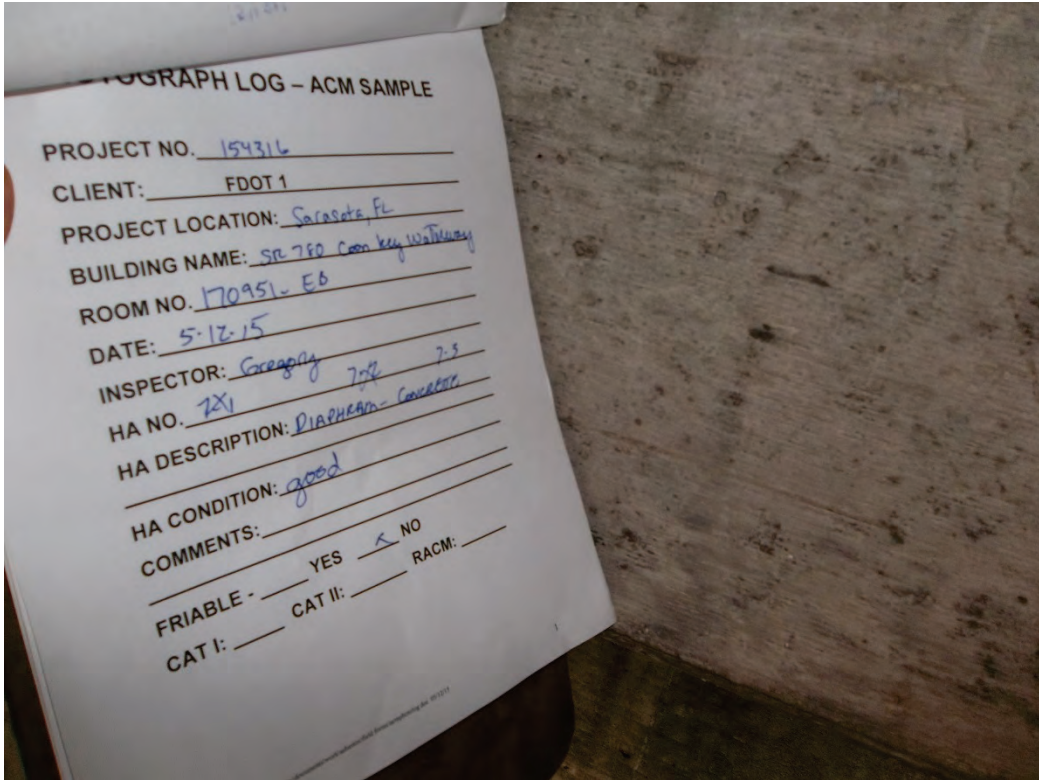 OTOGRAPH LOG – ACM SAMPLE
PROJECT NO. 154316
CLIENT: FDOT 1
PROJECT LOCATION: Sarasota, FL
BUILDING NAME: SR 780 Coon key Waterway
ROOM NO. 170951- EB
DATE: 5-12-15
INSPECTOR: Gregory
HA NO. 7X1 7X2 7-3
HA DESCRIPTION: DIAPHRAM - CONCRETE
HA CONDITION: good
COMMENTS:
FRIABLE - YES x NO
CAT I: CAT II: RACM: